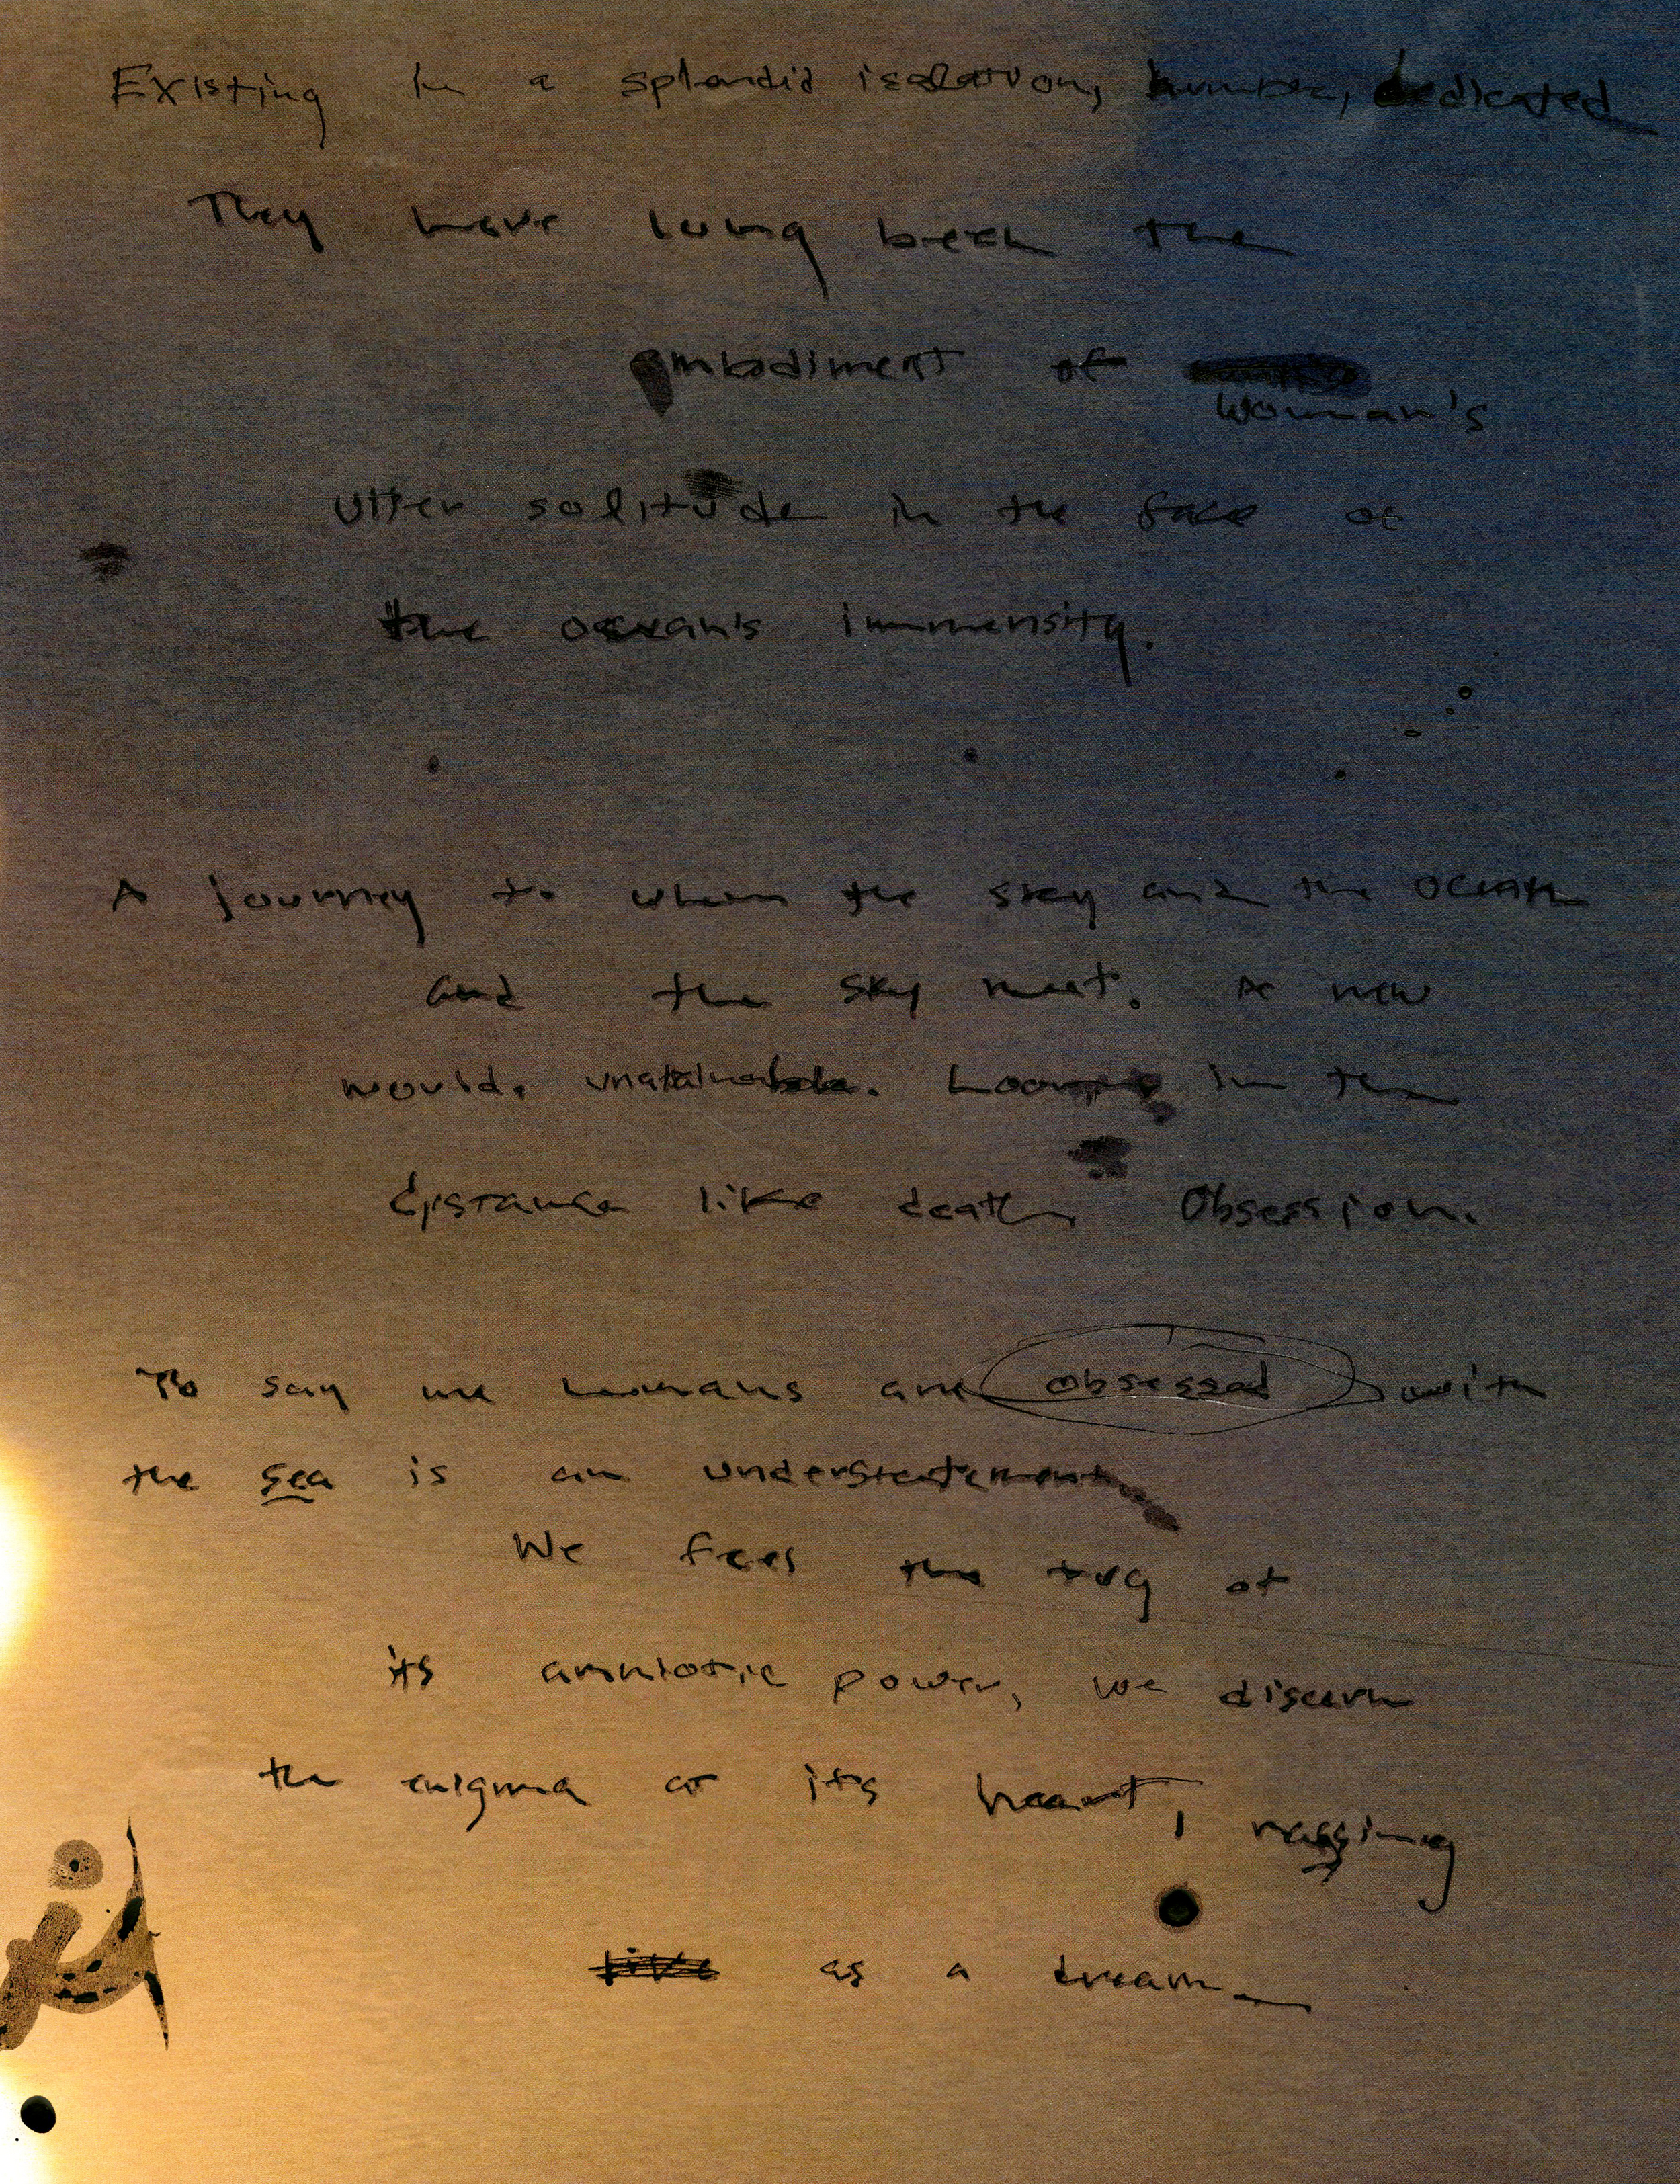 Existing in a splendid isolation, humble, dedicated
They have long been the
embodiment of
woman's
utter solitude in the face of
the ocean's immensity.
A journey to where the sky and the ocean
and the sky meet. A new
world. unatainable. in the
distance like death Obsession.
To say we humans are obsessed with
the sea is an understatement
We feel the tug of
its amniotic power, we discern
the enigma at its heart,
like as a dream